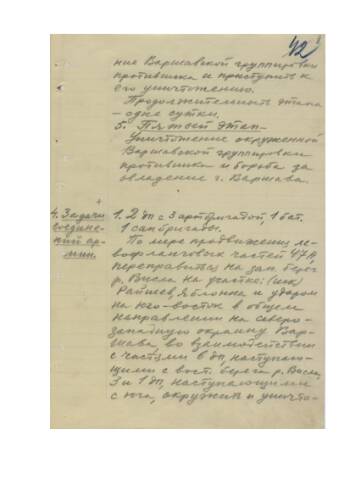 42
ние Варшавской группировки
противника и приступить к
его уничтожению.
Продолжительность этапа
– одне сутки.
5. Пятый этап –
Уничтожение окруженной
Варшавской группировки
противника и борьба за
овладение г. Варшава.
4. Задачи соединений армии.
1. 2 дп с 3 артбригадой, 1 бат.
1 сапбригады.
По мере продвижения ле-
вофланговых частей 47А,
переправиться на зап. берег
р. Висла на участке: (иск)
Яблонна и ударом
на юго-восток в общем
направлении на северо-
западную окраину Вар-
шава, во взаимодействии
с частями 6 дп, наступаю-
щими с вост. берега р. Висла,
3 и 1 дп, наступающими
с юга, окружить и уничто-